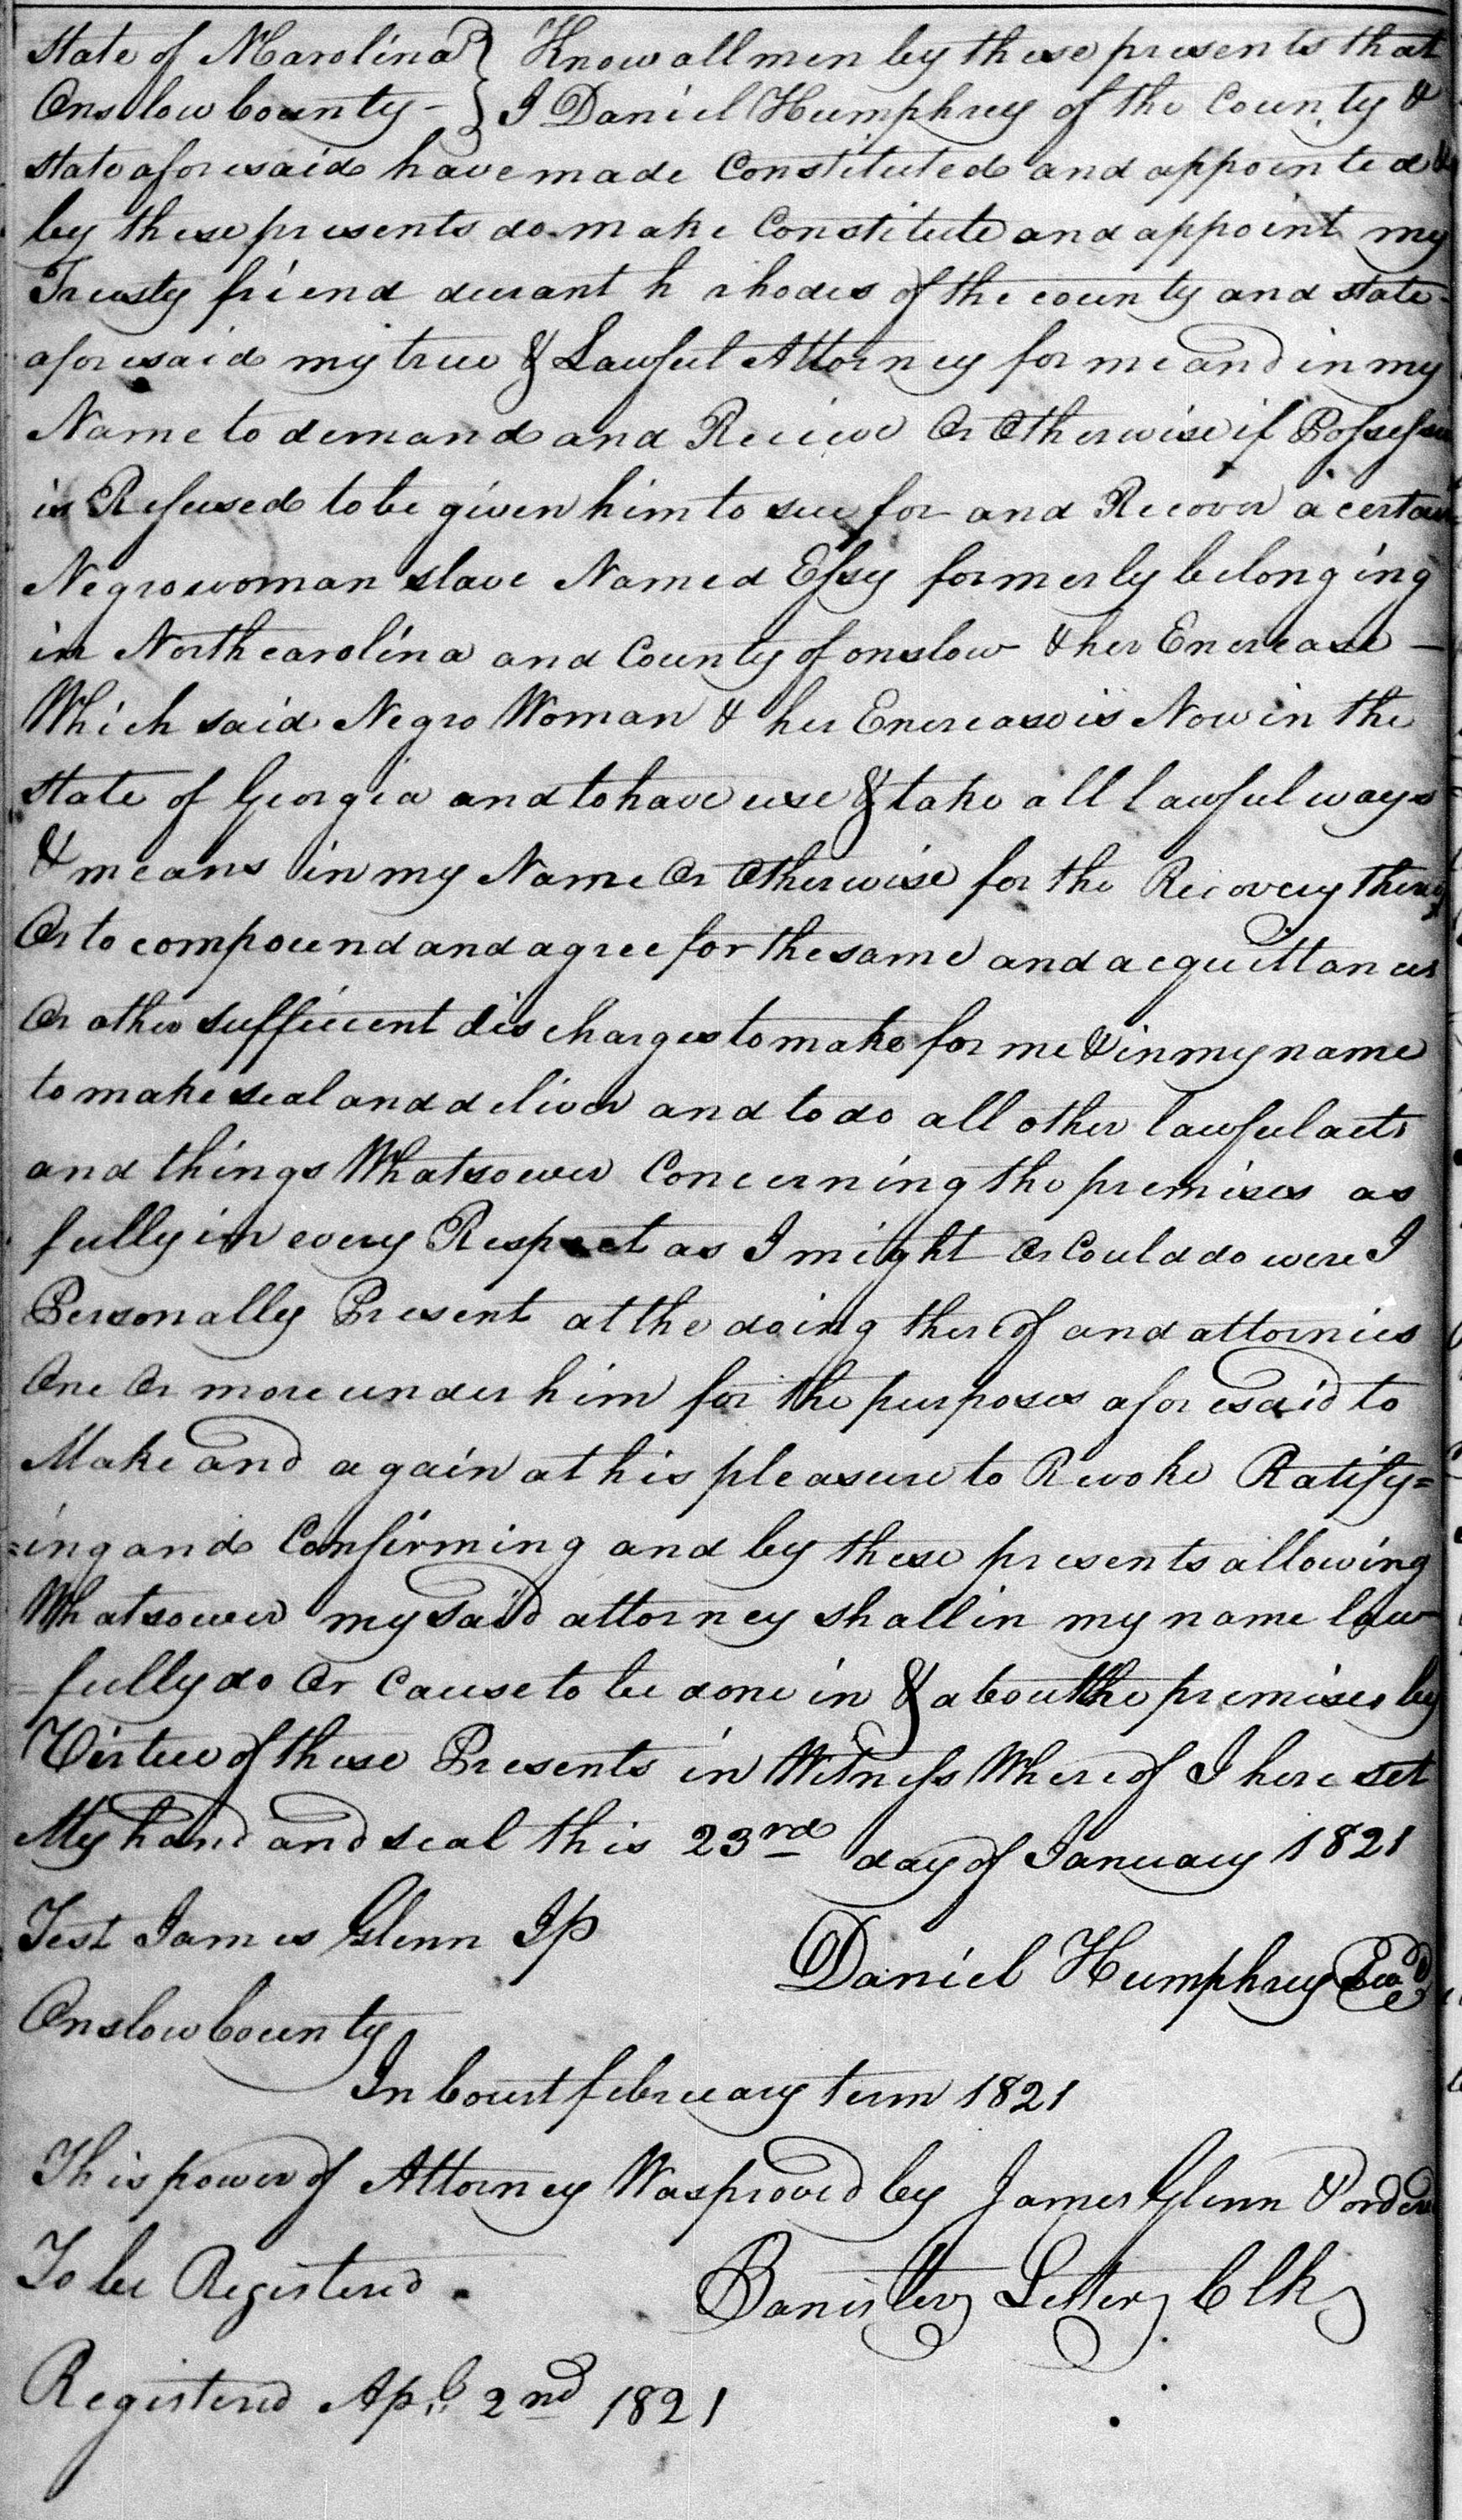 State of NCarolina } Know all men by these presents that
Onslow County - } I Daniel Humphrey of the County &
state aforesaid have made Constituted and appointed &
by these presents do make Constitute and appoint my
Trusty friend durant h rhodes of the county and state
aforesaid my true & Lawful Attorney for me and in my
Name to demand and Recieve Or Otherwise if Possession
is Refused to be given him to sue for and Recover a certain
Negro woman slave Named Essy formerly belonging
in North carolina and County of onslow & her Encrease —
Which said Negro Woman & her Encrease is Now in the
state of Georgia and to have use & take all lawful ways
& means in my Name Or Otherwise for the Recovery thereof
Or to compound and agree for the same and acquittances
Or other sufficient discharges to make for me & in my name
to make seal and deliver and to do all other lawful acts
and things Whatsoever Concerning the premises as
fully in every Respect as I might Or Could do were I
Personally Present at the doing thereof and attornies
One Or more under him for the purposes aforesaid to
Make and again at his pleasure to Revoke Ratify=
=ing and Confirming and by these presents allowing
Whatsoever my said attorney shall in my name law
=fully do Or Cause to be done in & about the premises by
Virtue of these Presents in Witness Whereof I here set
My hand and seal this 23nd day of January 1821
Test James Glenn JP
Daniel Humphrey Seal
Onslow County
In Court february term 1821
This power of Attorney Was proved by James Glenn & ordered
To be Registered.
Banister Lester Clk
Registered Apl 2nd 1821